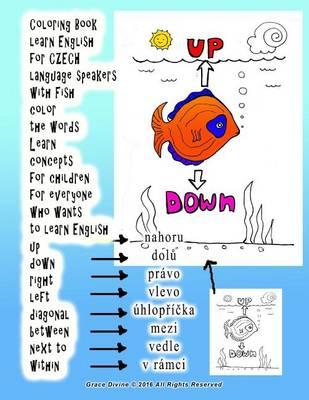 Coloring Book
learn English
for CZECH
language speakers
with Fish
color
the words
Learn
concepts
for children
for everyone
who wants
to learn English
up
down
right
left
diagonal
between
next to
within
nahoru
dolů
právo
vlevo
úhlopříčka
mezi
vedle
v rámci
UP
DOWN
UP
DOWN
Grace Divine © 2016 All Rights Reserved